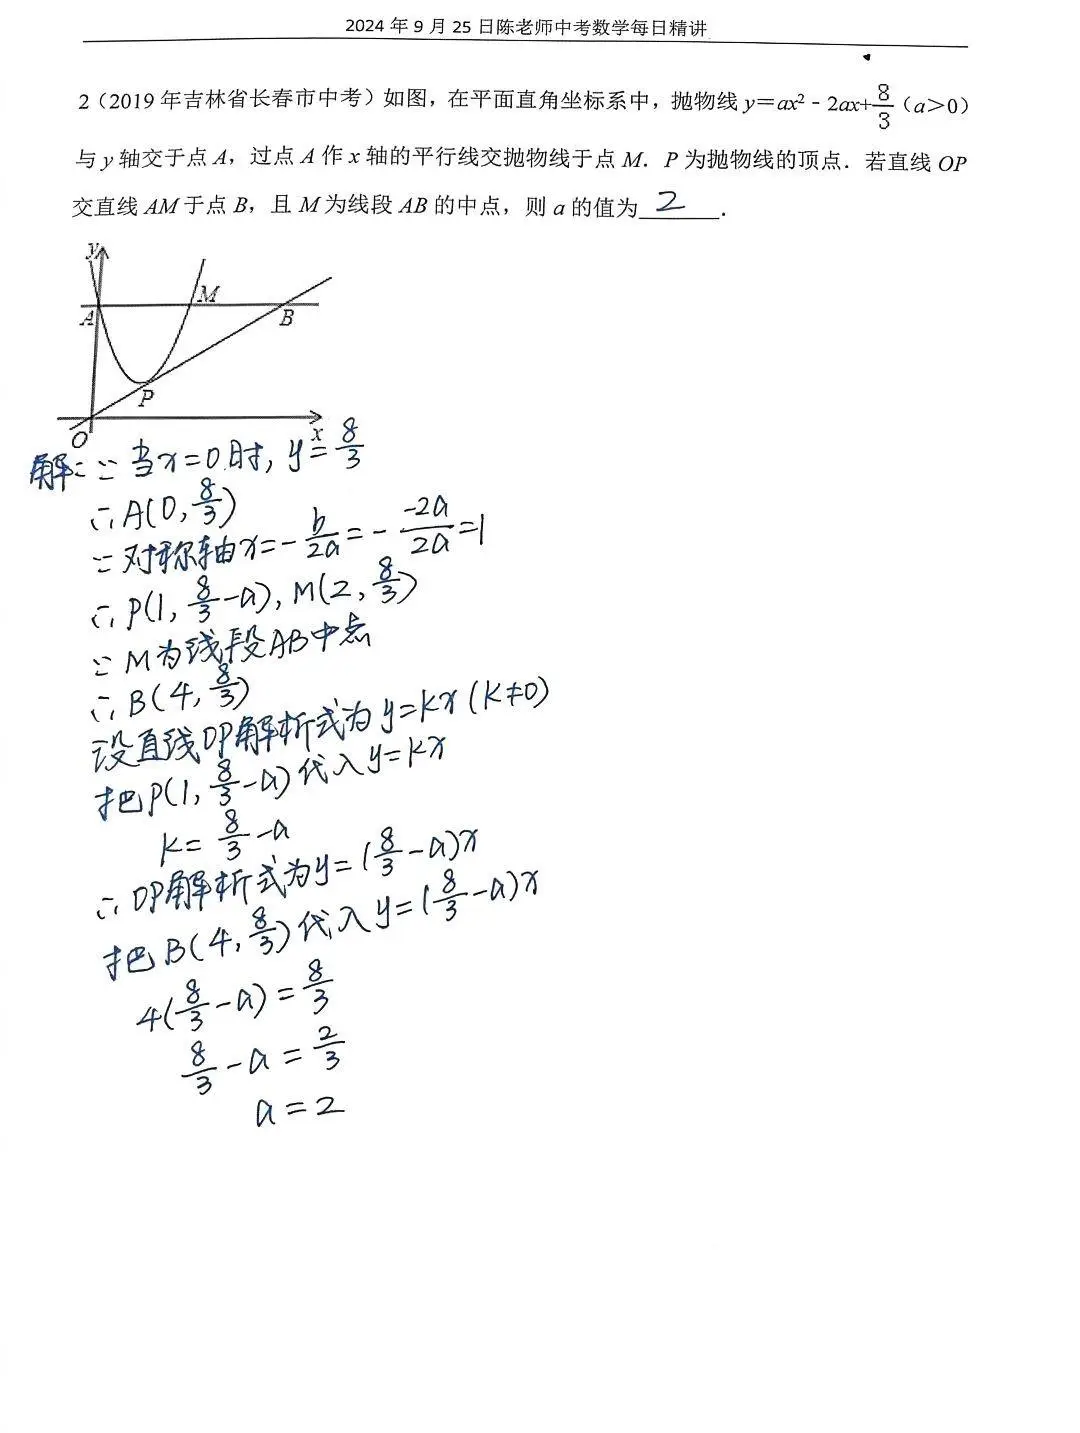 2024 年 9 月 25 日陈老师中考数学每日精讲
2（2019 年吉林省长春市中考）如图，在平面直角坐标系中，抛物线 y＝ax² - 2ax+8/3（a＞0）
与 y 轴交于点 A，过点 A 作 x 轴的平行线交抛物线于点 M．P 为抛物线的顶点．若直线 OP
交直线 AM 于点 B，且 M 为线段 AB 的中点，则 a 的值为 2 ．
y
M
A
B
P
O
x
解：∵当x=0时, y=8/3
∴A(0, 8/3)
∵对称轴x=-b/2a=-(-2a)/2a=1
∴P(1, 8/3-a), M(2, 8/3)
∵M为线段AB中点
∴B(4, 8/3)
设直线OP解析式为y=kx(k≠0)
把P(1, 8/3-a)代入y=kx
k=8/3-a
∴OP解析式为y=(8/3-a)x
把B(4, 8/3)代入y=(8/3-a)x
4(8/3-a)=8/3
8/3-a=2/3
a=2